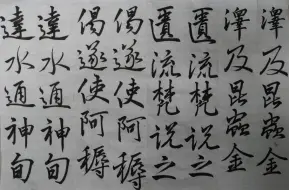 澤及昆蟲金
澤及昆蟲金
匱流梵说之
匱流梵说之
偈遂使阿耨
偈遂使阿耨
達水通神甸
達水通神甸